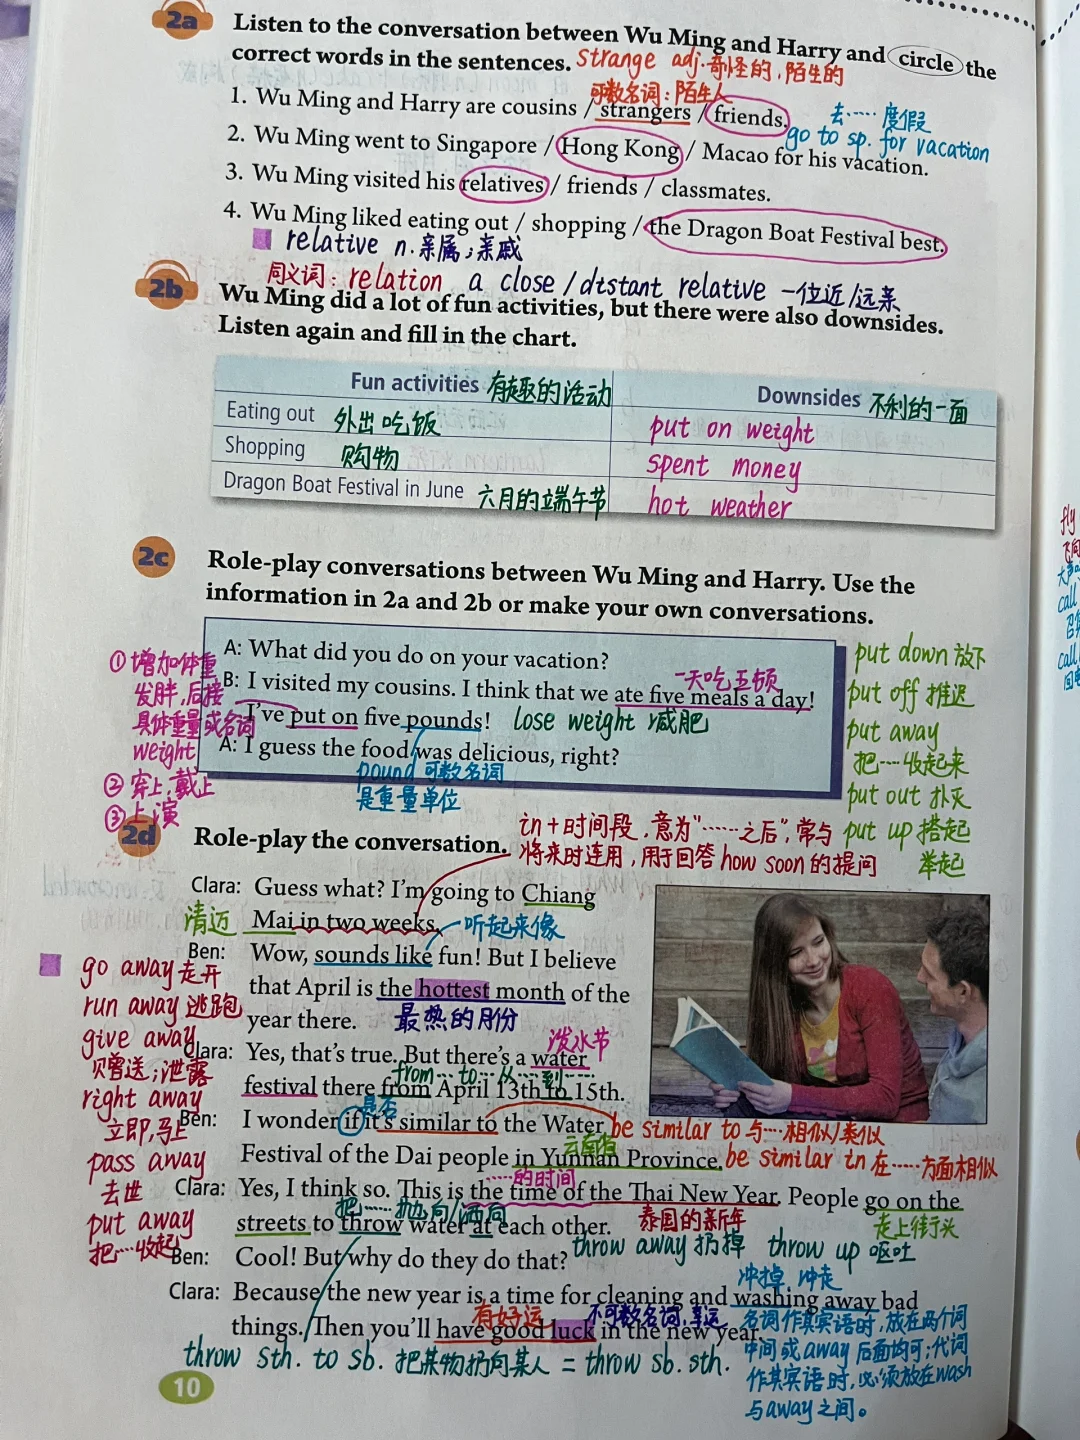 2a
Listen to the conversation between Wu Ming and Harry and circle the
correct words in the sentences.
strange adj. 奇怪的，陌生的
可数名词：陌生人
1. Wu Ming and Harry are cousins / strangers / friends.
去……度假
go to sp. for vacation
2. Wu Ming went to Singapore / Hong Kong / Macao for his vacation.
3. Wu Ming visited his relatives / friends / classmates.
4. Wu Ming liked eating out / shopping / the Dragon Boat Festival best.
relative n. 亲属；亲戚
同义词：relation a close / distant relative 一位近/远亲
2b
Wu Ming did a lot of fun activities, but there were also downsides.
Listen again and fill in the chart.
Fun activities 有趣的活动
Downsides 不利的一面
Eating out 外出吃饭
put on weight
Shopping 购物
spent money
Dragon Boat Festival in June 六月的端午节
hot weather
2c
Role-play conversations between Wu Ming and Harry. Use the
information in 2a and 2b or make your own conversations.
A: What did you do on your vacation?
一天吃五顿
B: I visited my cousins. I think that we ate five meals a day!
I've put on five pounds! lose weight 减肥
A: I guess the food was delicious, right?
pound 可数名词
是重量单位
①增加体重
发胖，后接
具体重量或名词
weight
②穿上，戴上
③上演
put down 放下
put off 推迟
put away
把…收起来
put out 扑灭
put up 搭起
举起
2d
Role-play the conversation.
in + 时间段，意为“……之后”，常与
将来时连用，用于回答 how soon 的提问
Clara: Guess what? I'm going to Chiang
清迈
Mai in two weeks. 听起来像
Ben: Wow, sounds like fun! But I believe
that April is the hottest month of the
year there. 最热的月份
泼水节
Clara: Yes, that's true. But there's a water
from…to… 从…到……
festival there from April 13th to 15th.
是否
Ben: I wonder if it's similar to the Water
be similar to 与…相似/类似
云南省
Festival of the Dai people in Yunnan Province.
be similar in 在……方面相似
……的时间
Clara: Yes, I think so. This is the time of the Thai New Year. People go on the
把……抛向/洒向
泰国的新年
走上街头
streets to throw water at each other.
throw away 扔掉 throw up 呕吐
Ben: Cool! But why do they do that?
冲掉，冲走
Clara: Because the new year is a time for cleaning and washing away bad
有好运
不可数名词，幸运
things. Then you'll have good luck in the new year.
throw sth. to sb. 把某物扔向某人 = throw sb. sth.
名词作其宾语时，放在两个词
中间或away后面均可；代词
作其宾语时，必须放在wash
与away之间。
go away 走开
run away 逃跑
give away
赠送；泄露
right away
立即，马上
pass away
去世
put away
把…收起
10
fly
call
call